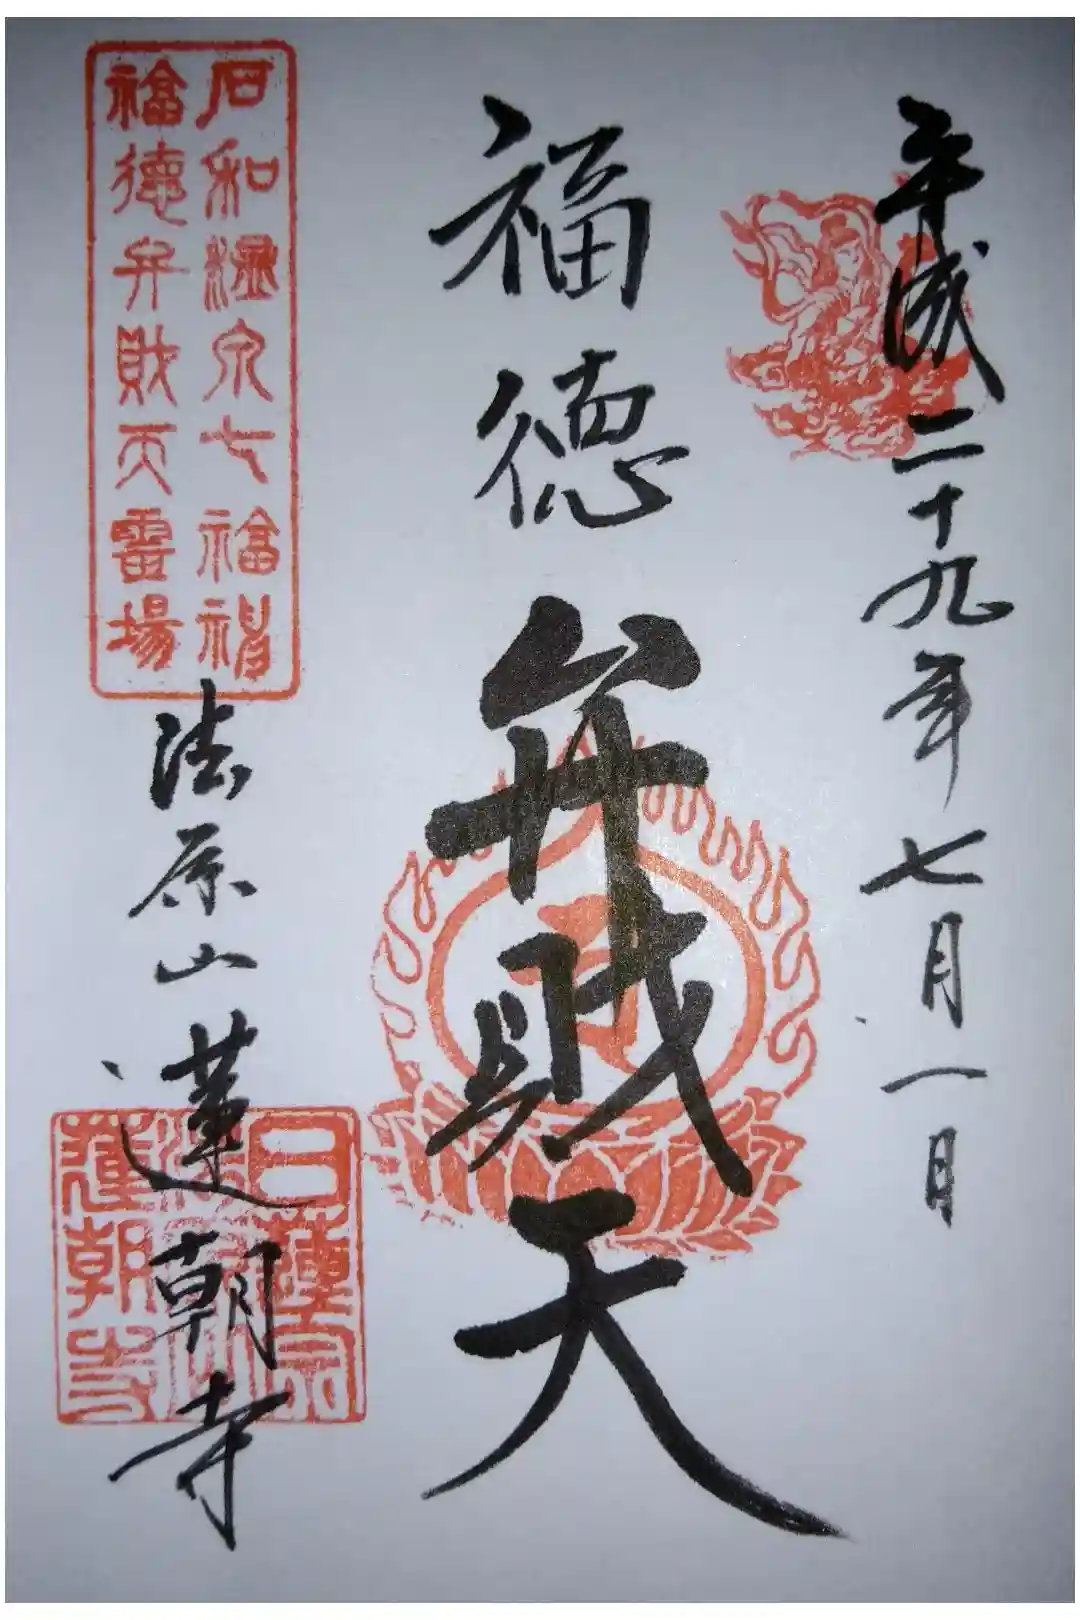 平成二十九年七月一日
福徳
弁財天
石和温泉七福神
福德弁財天霊場
法原山蓮朝寺
日蓮宗
法原山
蓮朝寺